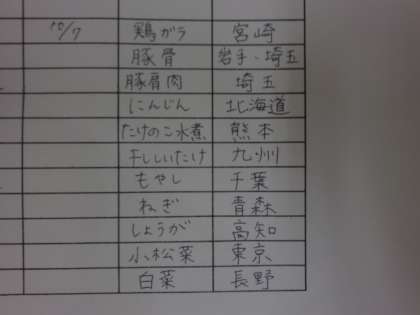 10/7 鶏ガラ 宮崎
豚骨 岩手・埼玉
豚肩肉 埼玉
にんじん 北海道
たけのこ水煮 熊本
干ししいたけ 九州
もやし 千葉
ねぎ 青森
しょうが 高知
小松菜 東京
白菜 長野